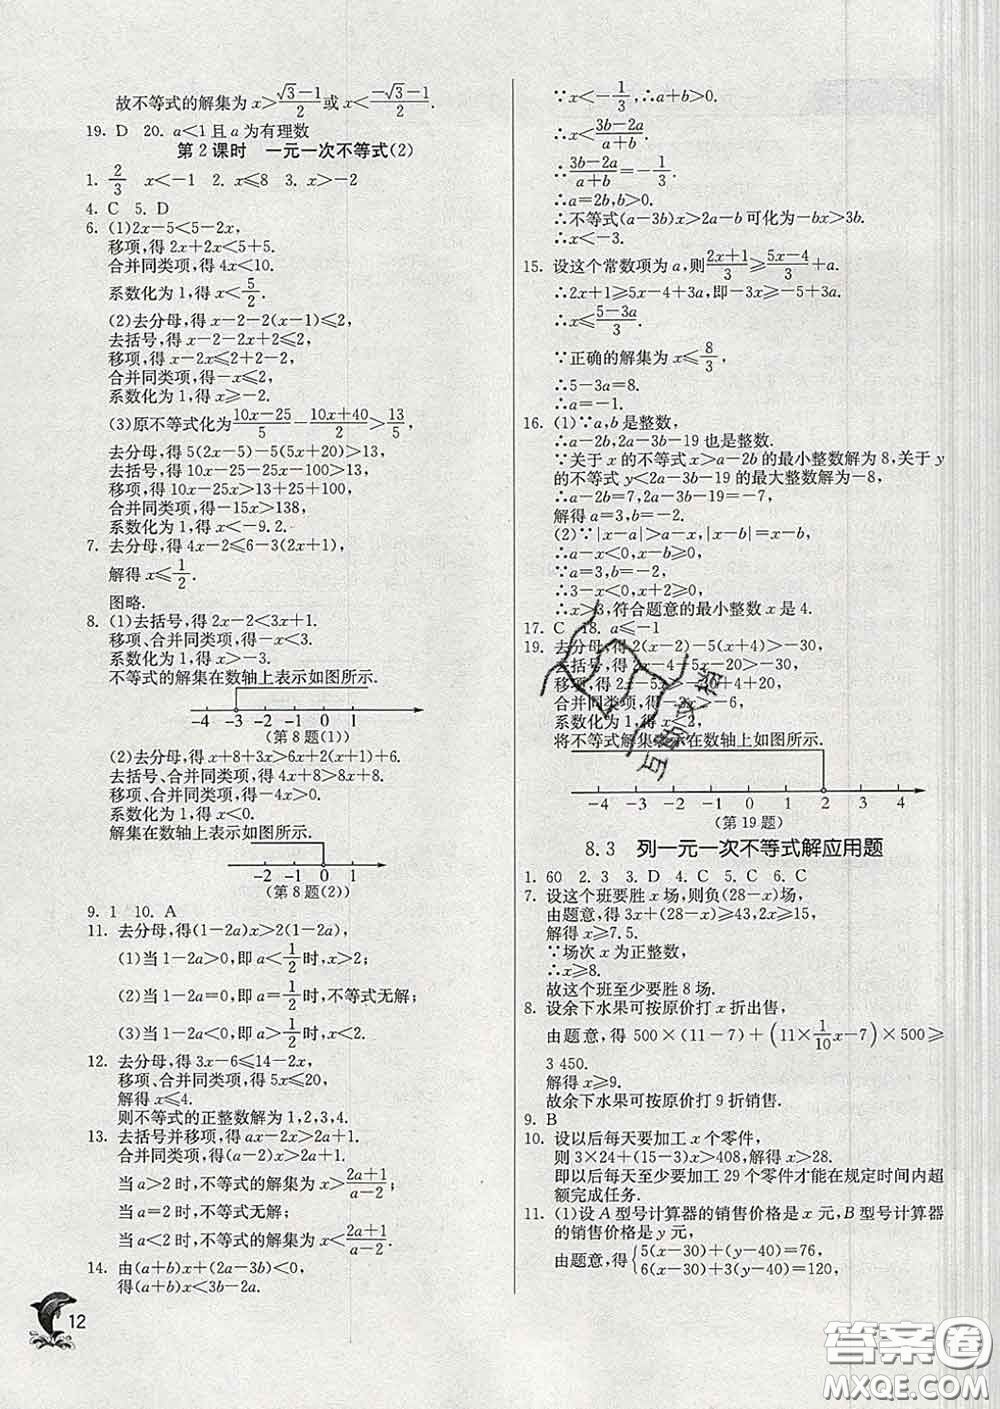 故不等式的解集为 x>(√3-1)/2 或 x<(-√3-1)/2.
19. D 20. a<1且a为有理数
第2课时 一元一次不等式(2)
1. 2/3 x<-1 2. x≤8 3. x>-2
4. C 5. D
6. (1)2x-5<5-2x,
移项,得 2x+2x<5+5.
合并同类项,得 4x<10.
系数化为1,得 x<5/2.
(2)去分母,得 x-2-2(x-1)≤2,
去括号,得 x-2-2x+2≤2,
移项,得 x-2x≤2+2-2,
合并同类项,得-x≤2,
系数化为1,得 x≥-2.
(3)原不等式化为(10x-25)/5-(10x+40)/2>13/5,
去分母,得 5(2x-5)-5(5x+20)>13,
去括号,得 10x-25-25x-100>13,
移项,得 10x-25x>13+25+100,
合并同类项,得-15x>138,
系数化为1,得 x<-9.2.
7. 去分母,得 4x-2≤6-3(2x+1),
解得 x≤1/2.
图略.
8. (1)去括号,得 2x-2<3x+1.
移项、合并同类项,得-x<3.
系数化为1,得 x>-3.
不等式的解集在数轴上表示如图所示.
-4 -3 -2 -1 0 1
(第8题(1))
(2)去分母,得 x+8+3x>6x+2(x+1)+6.
去括号、合并同类项,得 4x+8>8x+8.
移项、合并同类项,得-4x>0.
系数化为1,得 x<0.
解集在数轴上表示如图所示.
-2 -1 0 1
(第8题(2))
9. 1 10. A
11. 去分母,得(1-2a)x>2(1-2a),
(1)当 1-2a>0,即 a<1/2 时,x>2;
(2)当 1-2a=0,即 a=1/2 时,不等式无解;
(3)当 1-2a<0,即 a>1/2 时,x<2.
12. 去分母,得 3x-6≤14-2x,
移项、合并同类项,得 5x≤20,
解得 x≤4.
则不等式的正整数解为 1,2,3,4.
13. 去括号并移项,得 ax-2x>2a+1.
合并同类项,得(a-2)x>2a+1.
当 a>2 时,不等式的解集为 x>(2a+1)/(a-2);
当 a=2 时,不等式无解;
当 a<2 时,不等式的解集为 x<(2a+1)/(a-2).
14. 由(a+b)x+(2a-3b)<0,
得(a+b)x<3b-2a.
12
∵x<-1/3,∴a+b>0.
∴x<(3b-2a)/(a+b).
∴(3b-2a)/(a+b)=-1/3.
∴a=2b,b>0.
∴不等式(a-3b)x>2a-b 可化为-bx>3b.
∴x<-3.
15. 设这个常数项为 a,则(2x+1)/3≥(5x-4)/3+a.
∴2x+1≥5x-4+3a,即-3x≥-5+3a.
∴x≤(5-3a)/3.
∵正确的解集为 x≤8/3,
∴5-3a=8.
∴a=-1.
16. (1)∵a,b 是整数,
∴a-2b,2a-3b-19 也是整数.
∵关于 x 的不等式 x>a-2b 的最小整数解为 8,关于 y
的不等式 y<2a-3b-19 的最大整数解为-8,
∴a-2b=7,2a-3b-19=-7,
解得 a=3,b=-2.
(2)∵|x-a|>a-x,|x-b|=x-b,
∴a-x<0,x-b≥0,
∵a=3,b=-2,
∴3-x<0,x+2≥0,
∴x>3,符合题意的最小整数 x 是 4.
17. C 18. a≤-1
19. 去分母,得 2(x-2)-5(x+4)>-30,
去括号,得 2x-4-5x-20>-30,
移项,得 2x-5x>-30+4+20,
合并同类项,得-3x>-6,
系数化为1,得 x<2,
将不等式解集表示在数轴上如图所示.
-4 -3 -2 -1 0 1 2 3 4
(第19题)
8.3 列一元一次不等式解应用题
1. 60 2. 3 3. D 4. C 5. C 6. C
7. 设这个班要胜 x 场,则负(28-x)场,
由题意,得 3x+(28-x)≥43,2x≥15,
解得 x≥7.5.
∵场次 x 为正整数,
∴x≥8.
故这个班至少要胜 8 场.
8. 设余下水果可按原价打 x 折出售,
由题意,得 500×(11-7)+(11×1/10x-7)×500≥
3 450.
解得 x≥9.
故余下水果可按原价打 9 折销售.
9. B
10. 设以后每天要加工 x 个零件,
则 3×24+(15-3)x>408,解得 x>28.
即以后每天至少要加工 29 个零件才能在规定时间内超
额完成任务.
11. (1)设 A 型号计算器的销售价格是 x 元,B 型号计算器
的销售价格是 y 元,
由题意,得{5(x-30)+(y-40)=76,
6(x-30)+3(y-40)=120,
互助文档
答案圈
MXQE.COM